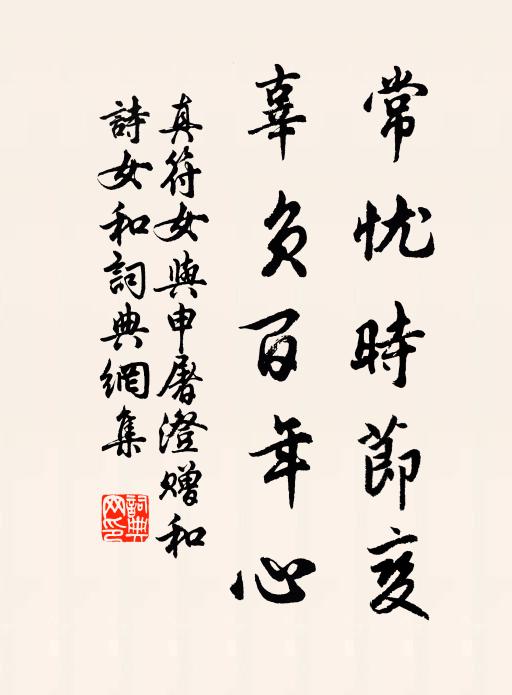 常忧時節变
辜负百年心
真符女與申屠澄赠和
詩女和詞典網集
詞典网印